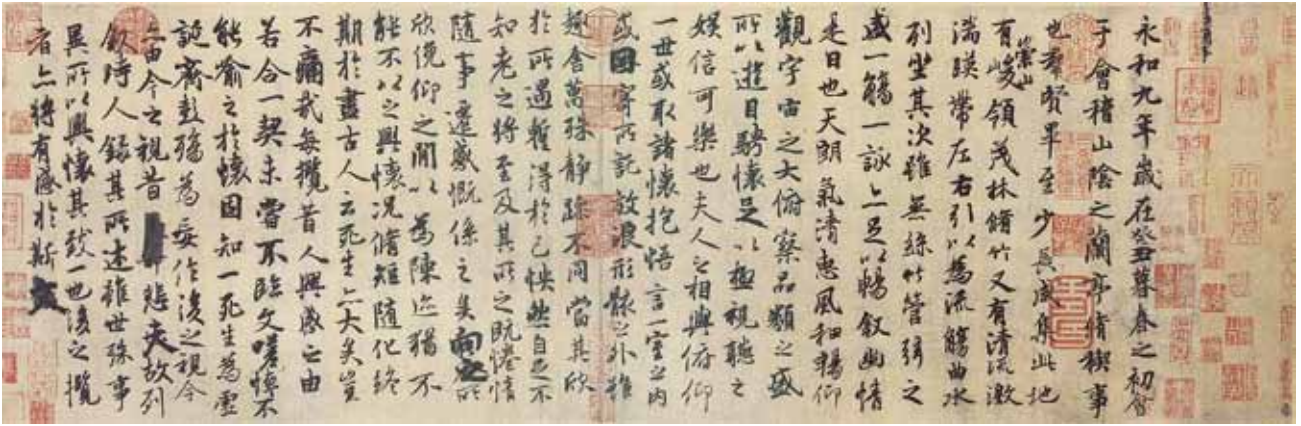 永和九年歲在癸丑暮春之初會
于會稽山陰之蘭亭脩稧事
也羣賢畢至少長咸集此地
有崇山峻領茂林脩竹又有清流激
湍暎帶左右引以為流觴曲水
列坐其次雖無絲竹管弦之
盛一觴一詠亦足以暢敘幽情
是日也天朗氣清惠風和暢仰
觀宇宙之大俯察品類之盛
所以遊目騁懷足以極視聽之
娛信可樂也夫人之相與俯仰
一世或取諸懷抱悟言一室之內
或因寄所託放浪形骸之外雖
趣舍萬殊靜躁不同當其欣
於所遇蹔得於己怏然自足不
知老之將至及其所之既惓情
隨事遷感慨係之矣向之所
欣俛仰之閒以為陳迹猶不
能不以之興懷況脩短隨化終
期於盡古人云死生亦大矣豈
不痛哉每攬昔人興感之由
若合一契未嘗不臨文嗟悼不
能喻之於懷固知一死生為虛
誕齊彭殤為妄作後之視今
亦由今之視昔悲夫故列
敘時人錄其所述雖世殊事
異所以興懷其致一也後之攬
者亦將有感於斯文